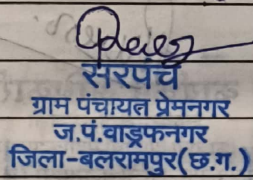 सरपंच
ग्राम पंचायत प्रेमनगर
ज.पं.वाड्रफनगर
जिला-बलरामपुर(छ.ग.)